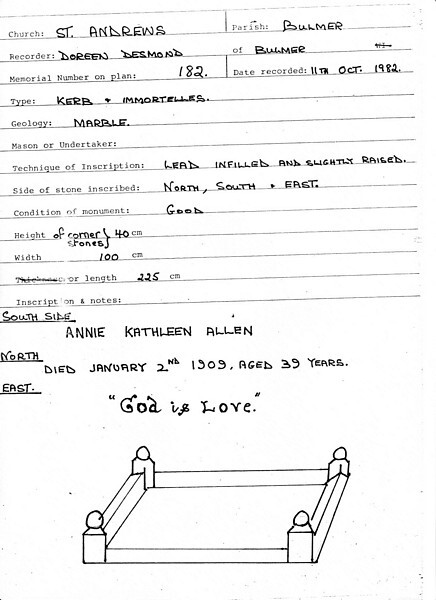 Church: ST. ANDREWS Parish: BULMER
Recorder: DOREEN DESMOND of BULMER
Memorial Number on plan: 182. Date recorded: 11TH OCT. 1982.
Type: KERB + IMMORTELLES.
Geology: MARBLE.
Mason or Undertaker:
Technique of Inscription: LEAD INFILLED AND SLIGHTLY RAISED.
Side of stone inscribed: NORTH, SOUTH + EAST.
Condition of monument: GOOD
Height of corner stones} 40 cm
Width 100 cm
Thickness or length 225 cm
Inscription & notes:
SOUTH SIDE
ANNIE KATHLEEN ALLEN
NORTH
DIED JANUARY 2ND 1909, AGED 39 YEARS.
EAST.
"God is Love."